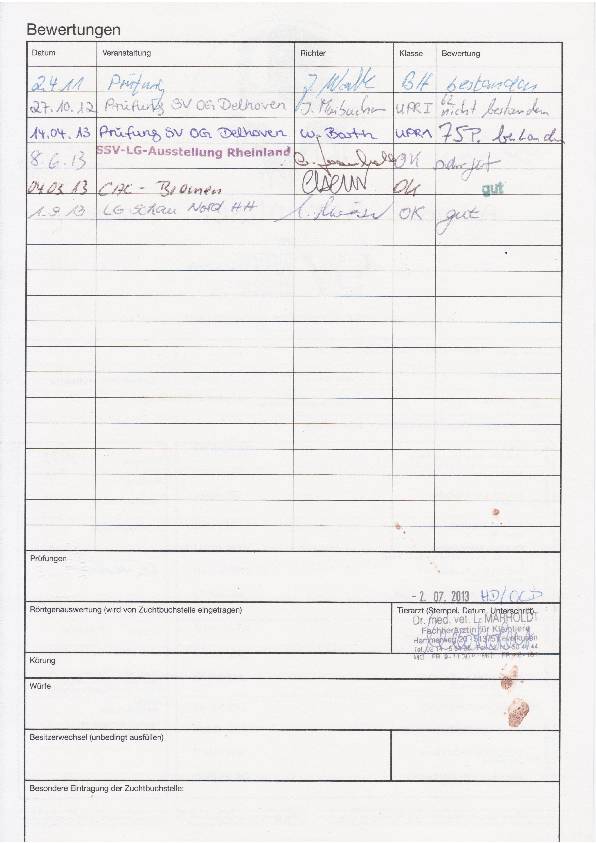 Bewertungen
Datum Veranstaltung Richter Klasse Bewertung
2.4 11 Prüfung J. BH bestanden
27.10.12 Prüfung SV OG Delhoven UPR I 62 nicht bestanden
14.04.13 Prüfung SV OG Delhoven W. Barth UPR1 75P. bestanden
8.6.13 SSV-LG-Ausstellung Rheinland OK sehr gut
13 CAC - Bremen OK gut
1.9.13 LG Schau Nord HH OK gut
Prüfungen
- 2. 07. 2013 HD/OCD
Röntgenauswertung (wird von Zuchtbuchstelle eingetragen) Tierarzt (Stempel, Datum, Unterschrift)
Dr. med. vet. L. MARHOLDT
Fachtierärztin für Kleintiere
Körung
Würfe
Besitzerwechsel (unbedingt ausfüllen)
Besondere Eintragung der Zuchtbuchstelle: